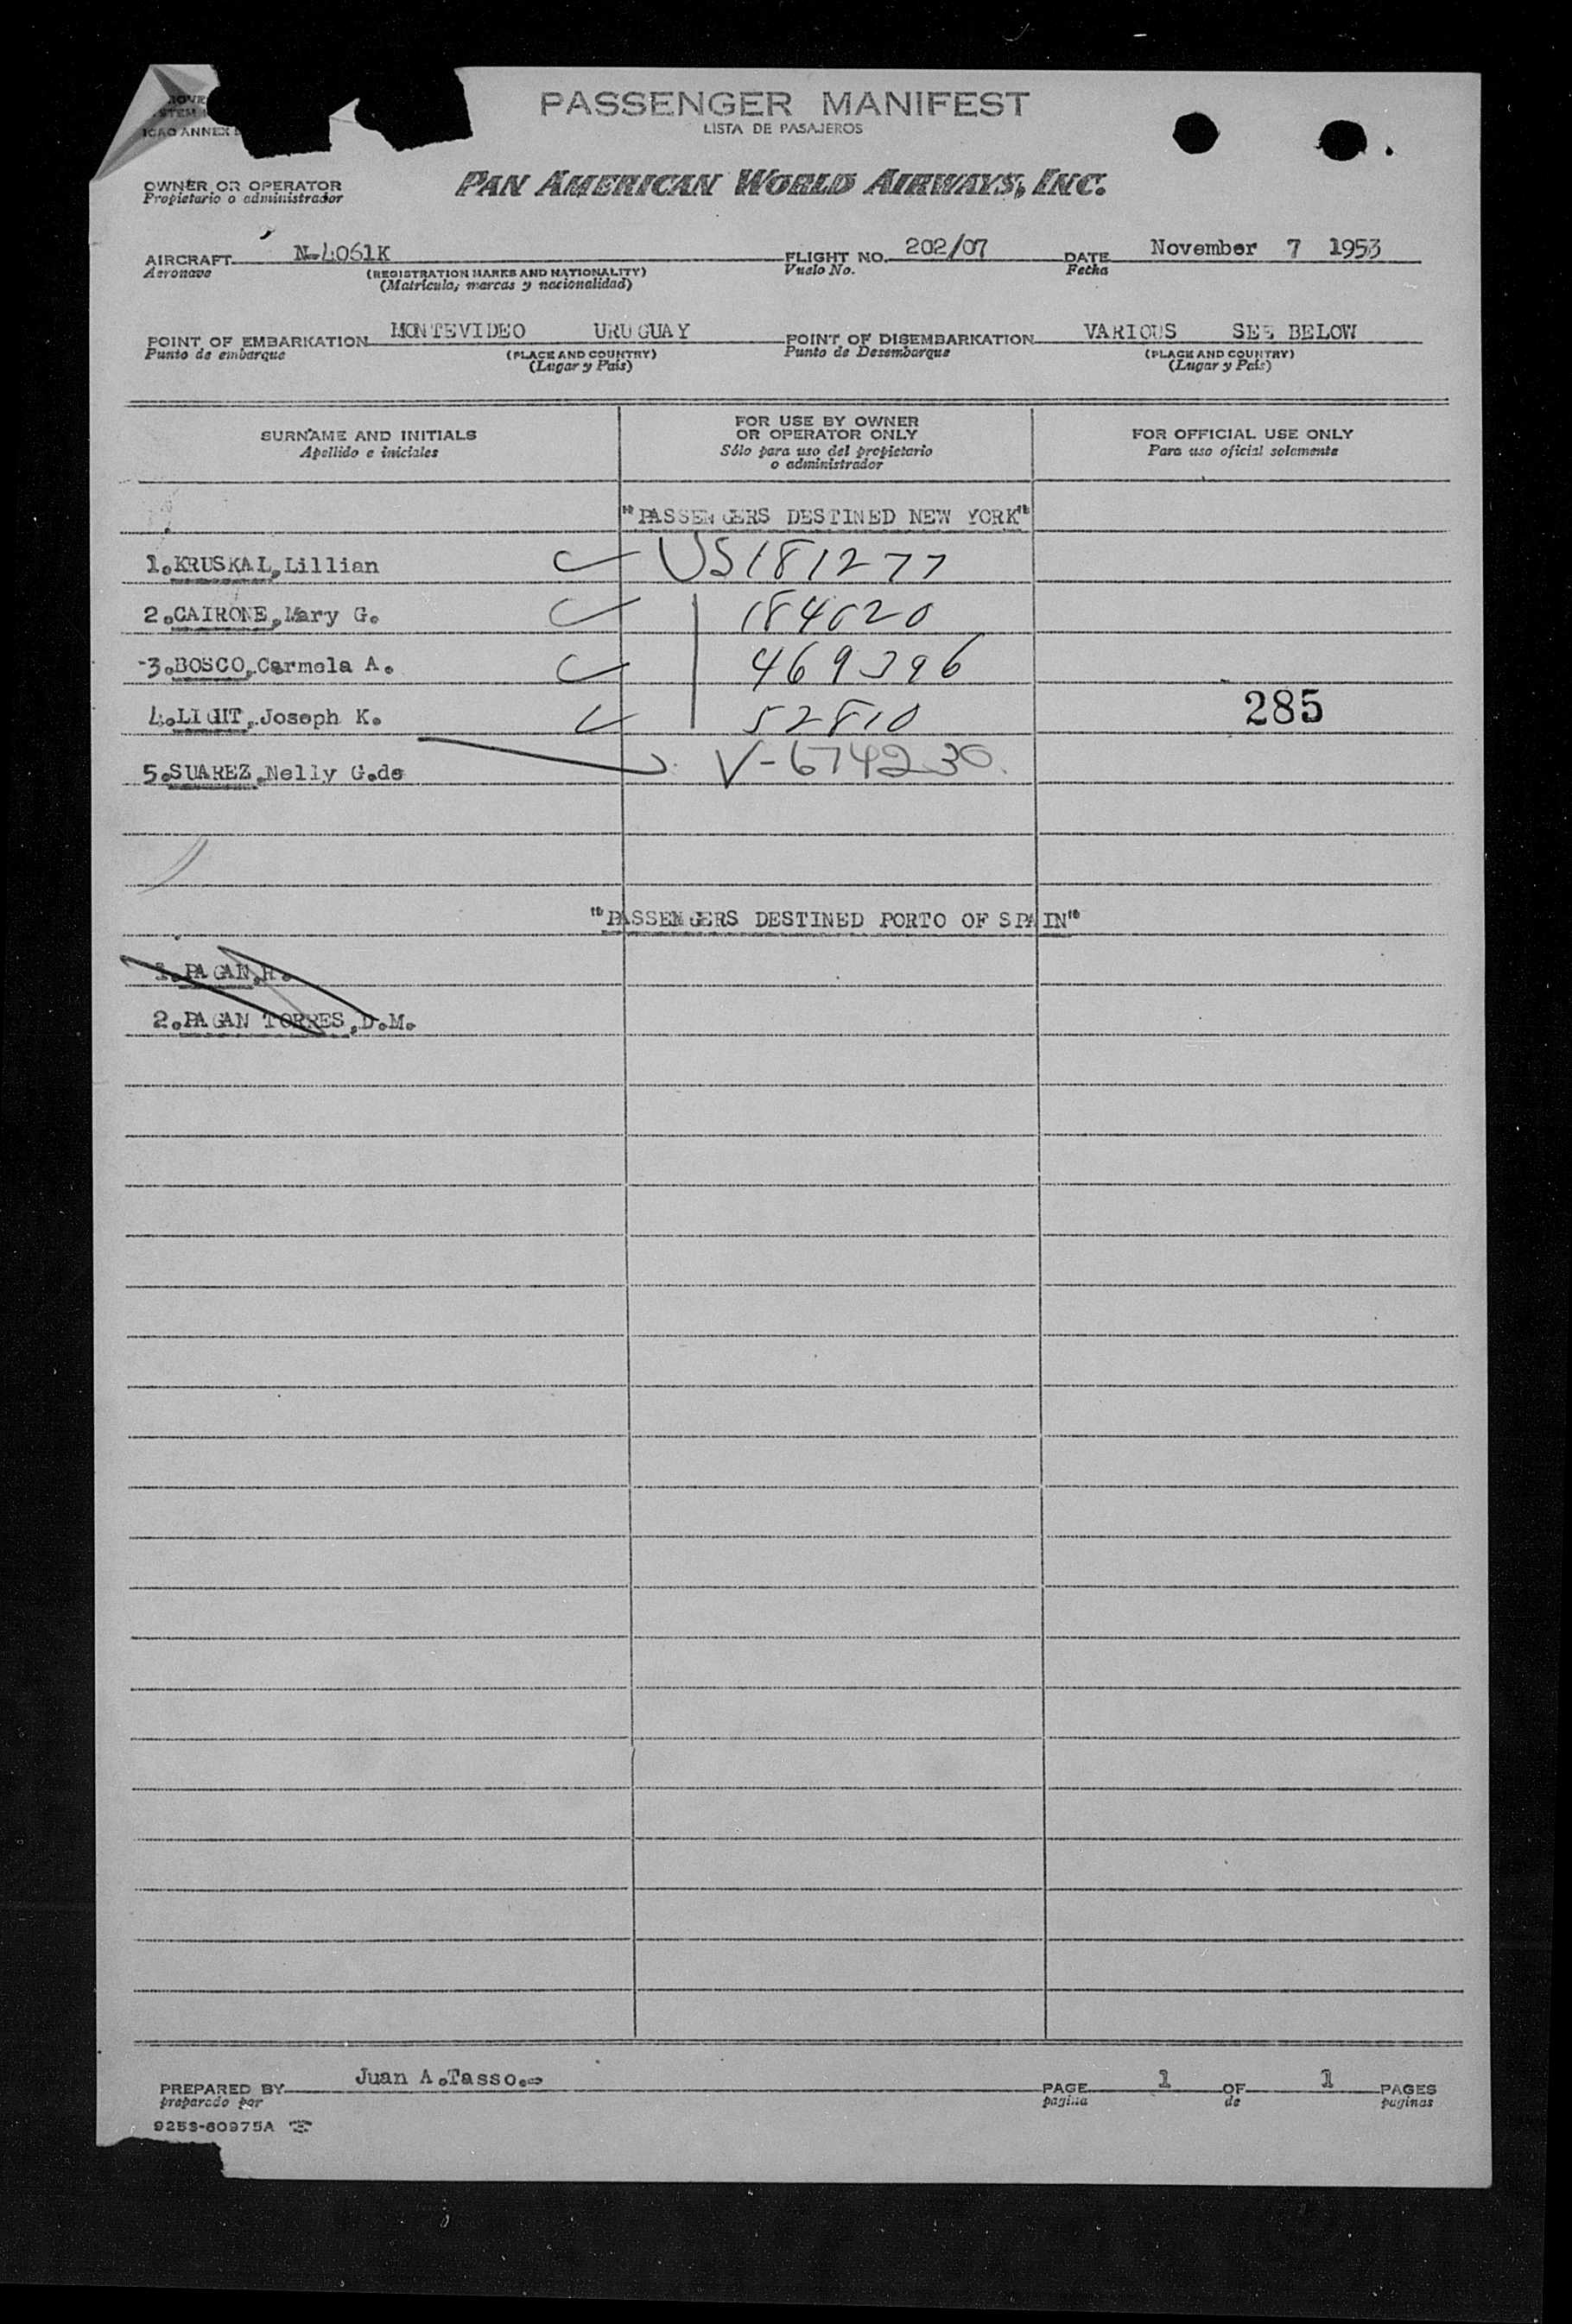 PASSENGER MANIFEST
LISTA DE PASAJEROS
ICAO ANNEX
OWNER OR OPERATOR
Propietario o administrador
PAN AMERICAN WORLD AIRWAYS, INC.
AIRCRAFT N-4061K FLIGHT NO. 202/07 DATE November 7 1953
Aeronave (REGISTRATION MARKS AND NATIONALITY) Vuelo No. Fecha
(Matricula, marcas y nacionalidad)
POINT OF EMBARKATION MONTEVIDEO URUGUAY POINT OF DISEMBARKATION VARIOUS SEE BELOW
Punto de embarque (PLACE AND COUNTRY) Punto de Desembarque (PLACE AND COUNTRY)
(Lugar y País) (Lugar y País)
SURNAME AND INITIALS
Apellido e iniciales
FOR USE BY OWNER
OR OPERATOR ONLY
Sólo para uso del propietario
o administrador
FOR OFFICIAL USE ONLY
Para uso oficial solamente
"PASSENGERS DESTINED NEW YORK"
1.KRUSKAL,Lillian US181277
2.CAIRONE,Mary G. 184020
-3.BOSCO,Carmela A. 469396
4.LIGHT,Joseph K. 52810 285
5.SUAREZ,Nelly G.de V-674230
"PASSENGERS DESTINED PORTO OF SPAIN"
1.PAGAN,H.
2.PAGAN TORRES,D.M.
PREPARED BY Juan A.Tasso.= PAGE 1 OF 1 PAGES
preparado por pagina de paginas
925S-60975A